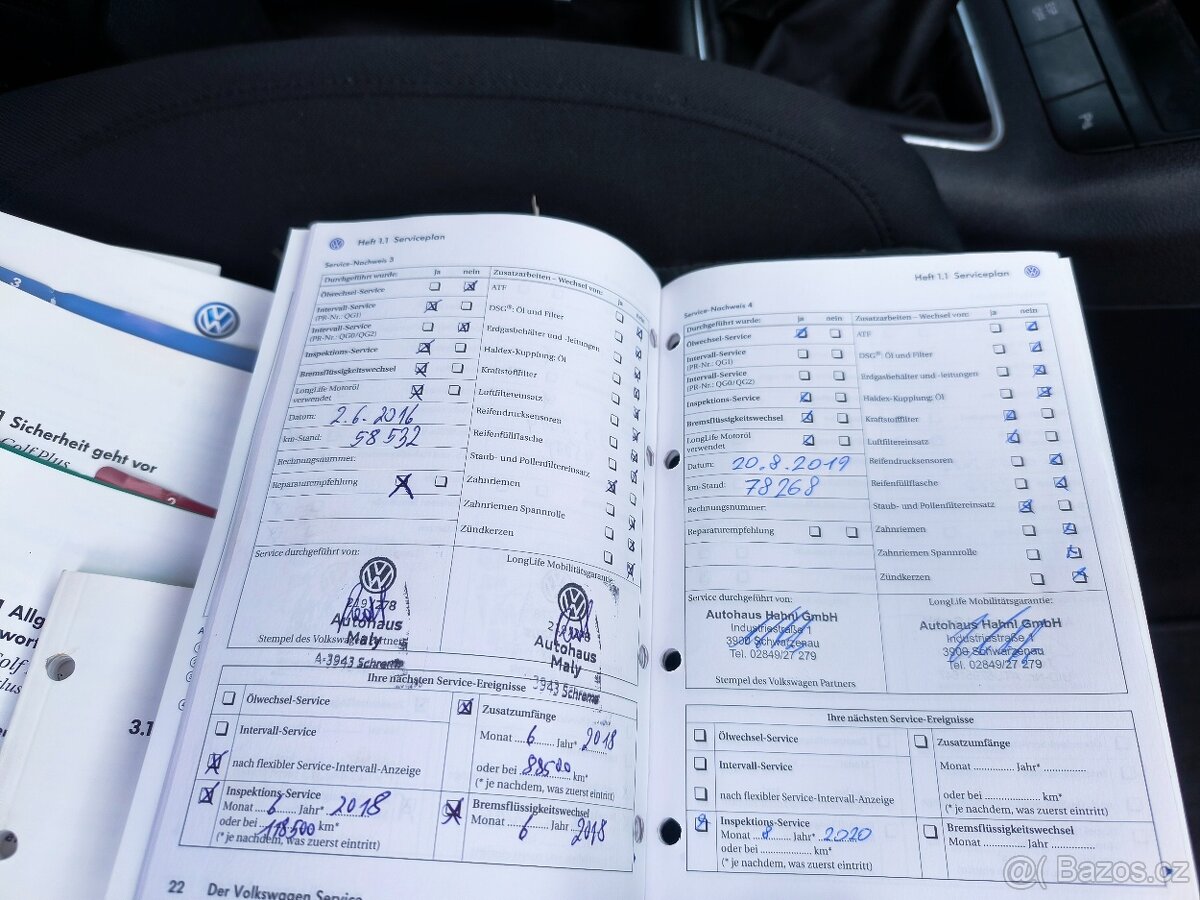 3
Sicherheit geht vor
Golf Plus
2
3.1
Heft 1.1 Serviceplan
Service-Nachweis 3
Durchgeführt wurde: ja nein
Ölwechsel-Service
Intervall-Service
(PR-Nr.: QG1)
Intervall-Service
(PR-Nr.: QG0/QG2)
Inspektions-Service
Bremsflüssigkeitswechsel
LongLife Motoröl
verwendet
Datum: 2.6.2016
km-Stand: 58532
Rechnungsnummer:
Reparaturempfehlung
Zusatzarbeiten – Wechsel von: ja
ATF
DSG®: Öl und Filter
Erdgasbehälter und -leitungen
Haldex-Kupplung: Öl
Kraftstofffilter
Luftfiltereinsatz
Reifendrucksensoren
Reifenfüllflasche
Staub- und Pollenfiltereinsatz
Zahnriemen
Zahnriemen Spannrolle
Zündkerzen
Service durchgeführt von:
Autohaus
Maly
Stempel des Volkswagen Partners
A-3943 Schrems
LongLife Mobilitätsgarantie:
Autohaus
Maly
3943 Schrems
Ihre nächsten Service-Ereignisse
Ölwechsel-Service
Intervall-Service
nach flexibler Service-Intervall-Anzeige
Inspektions-Service
Monat 6 Jahr* 2018
oder bei 118500 km*
(* je nachdem, was zuerst eintritt)
Zusatzumfänge
Monat 6 Jahr* 2018
oder bei 88500 km*
(* je nachdem, was zuerst eintritt)
Bremsflüssigkeitswechsel
Monat 6 Jahr* 2018
22 Der Volkswagen Service
Heft 1.1 Serviceplan
Service-Nachweis 4
Durchgeführt wurde: ja nein
Ölwechsel-Service
Intervall-Service
(PR-Nr.: QG1)
Intervall-Service
(PR-Nr.: QG0/QG2)
Inspektions-Service
Bremsflüssigkeitswechsel
LongLife Motoröl
verwendet
Datum: 20.8.2019
km-Stand: 78268
Rechnungsnummer:
Reparaturempfehlung
Zusatzarbeiten – Wechsel von: ja nein
ATF
DSG®: Öl und Filter
Erdgasbehälter und -leitungen
Haldex-Kupplung: Öl
Kraftstofffilter
Luftfiltereinsatz
Reifendrucksensoren
Reifenfüllflasche
Staub- und Pollenfiltereinsatz
Zahnriemen
Zahnriemen Spannrolle
Zündkerzen
Service durchgeführt von:
Autohaus Hahnl GmbH
Industriestraße 1
3900 Schwarzenau
Tel. 02849/27 279
Stempel des Volkswagen Partners
LongLife Mobilitätsgarantie:
Autohaus Hahnl GmbH
Industriestraße 1
3900 Schwarzenau
Tel. 02849/27 279
Ihre nächsten Service-Ereignisse
Ölwechsel-Service
Intervall-Service
nach flexibler Service-Intervall-Anzeige
Inspektions-Service
Monat 8 Jahr* 2020
oder bei km*
(* je nachdem, was zuerst eintritt)
Zusatzumfänge
Monat Jahr*
oder bei km*
(* je nachdem, was zuerst eintritt)
Bremsflüssigkeitswechsel
Monat Jahr*
Bazos.cz